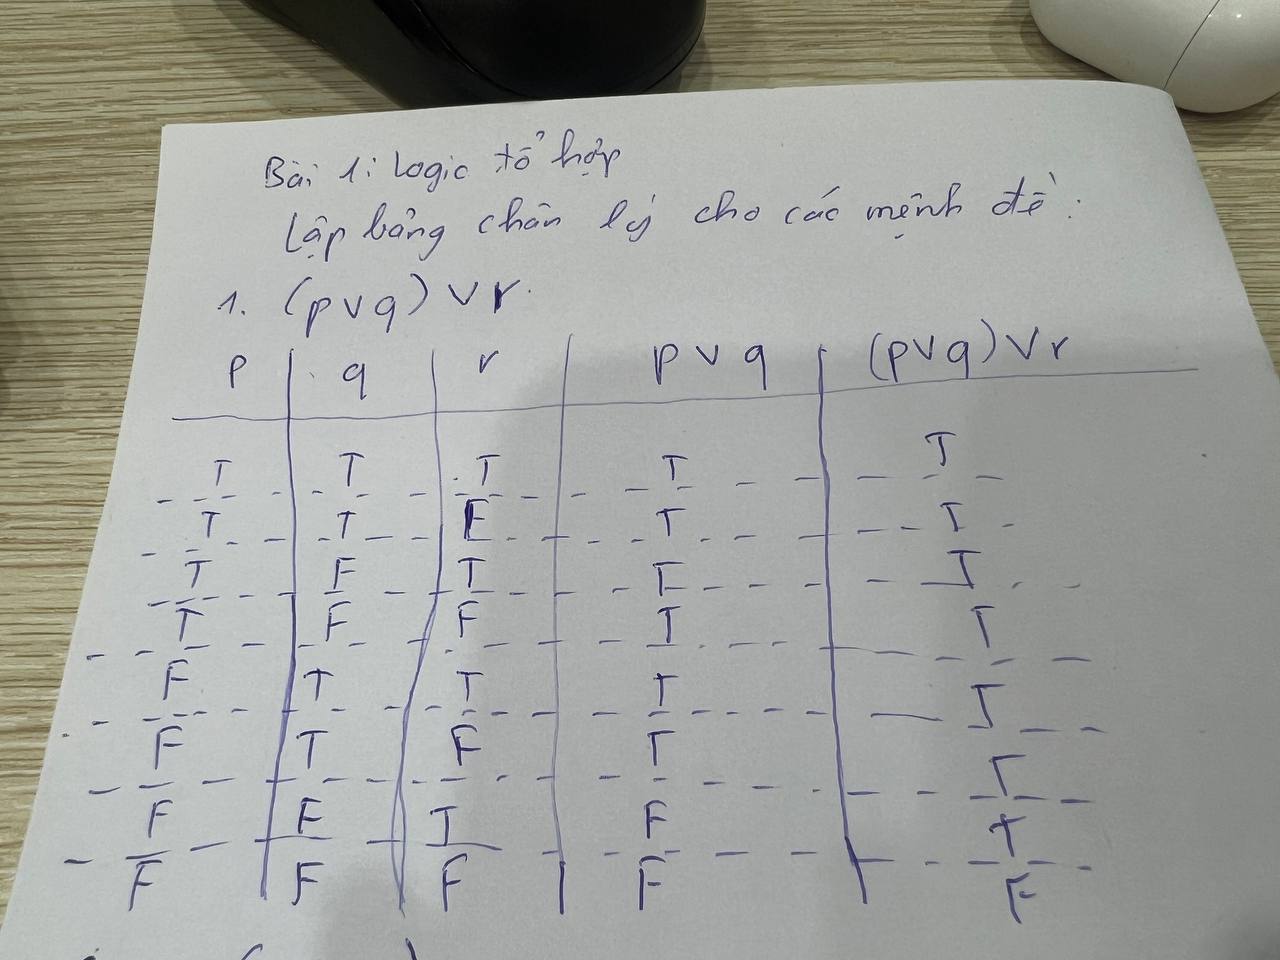 Bài 1: Logic tổ hợp
Lập bảng chân lý cho các mệnh đề:
1. (p ∨ q) ∨ r.
p q r p ∨ q (p ∨ q) ∨ r
T T T T T
T T F T T
T F T F T
T F F T T
F T T T T
F T F T T
F F T F T
F F F F F